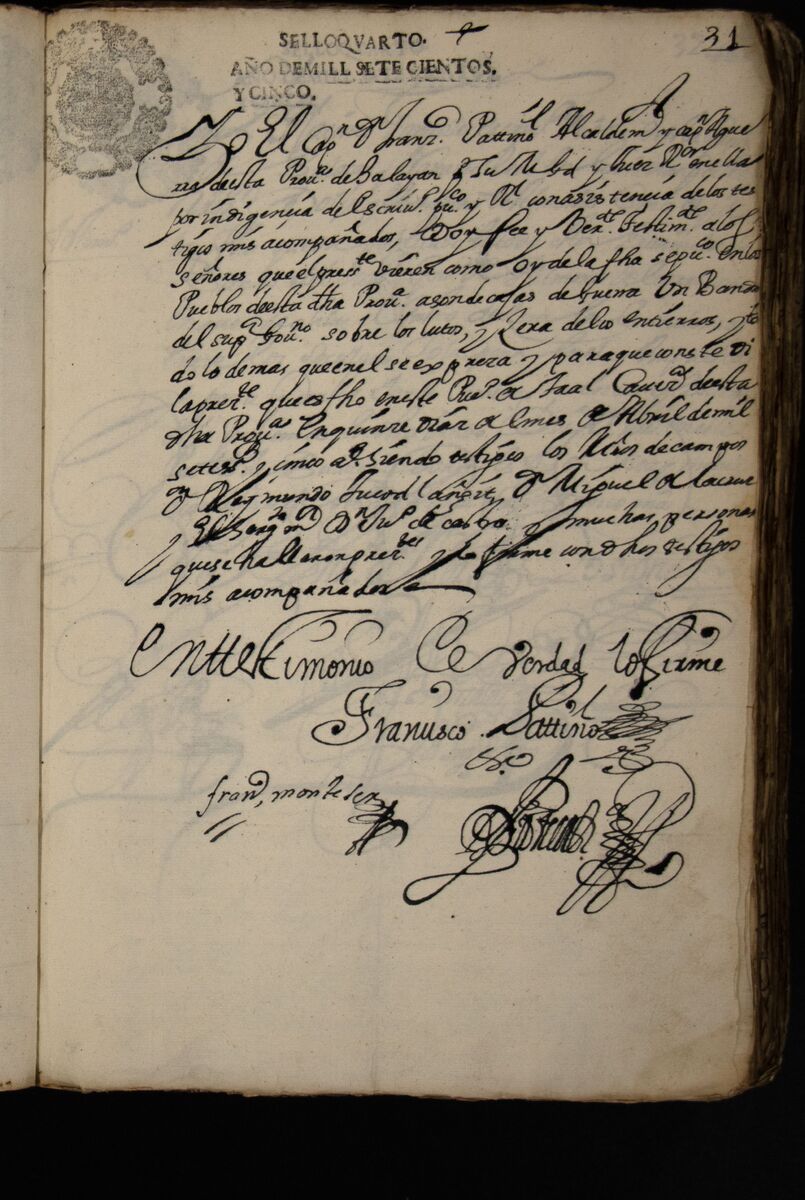 31
SELLO QVARTO.
AÑO DE MILL SETECIENTOS,
Y CINCO.
Yo El Cap.n D.n Franz.co Pattiño Alcalde m.r y cap.n A gue
rra de esta Prou.a de Balayan p.r Su Mag.d y Juez R.or en ella
por indigencia de Escriu.o pu.co y R.l con asistencia de los tes
tigos mis acompañados, Doy fee y Ver.te testim.o a los
señores que el press.te vieren como oy de la fha se pu.co en los
Pueblos de esta dha Prou.a a son de cajas de guerra Un Bando
del sup.or Gou.no sobre los lutos, y zera de los entierros, y to
do lo demas que en el se expreza y para que conste di
la prez.te que es fho en este Pue.o de Taal Cauez.a de esta
dha Prou.a En quinze dias del mes de Abril de mil
setez.s y cinco a.s Siendo testigos los M.ros de campos
D.n Raymundo D.n Miguel de la cruz
y El Sarg.to m.r D.n Ju.o de castro y muchas personas
que se hallaron prez.tes y lo firme con dhos testigos
mis acompañados
En ttestimonio De Verdad lo firme
Francisco Pattiño
fran.co monte ser